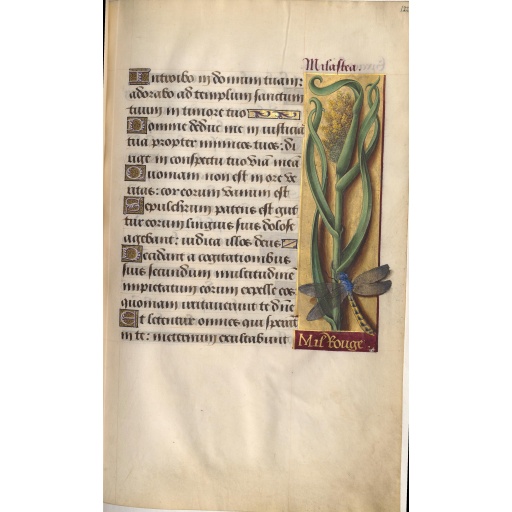 Milastea.
Introibo in domum tuam:
adorabo ad templum sanctum
tuum in timore tuo
Domine deduc me in iusticia
tua propter inimicos tuos: di
rige in conspectu tuo viam meā
Quoniam non est in ore ve
ritas: cor eorum vanum est
Sepulchrum patens est gut
tur eorum linguis suis dolose
agebant: iudica illos deus
Decidant a cogitationibus
suis secundum multitudinē
impietatum eorum expelle eos
quoniam irritaverunt te dn̄e
Et letentur omnes qui sperāt
in te: ineternum exultabunt
Mil Rouge.